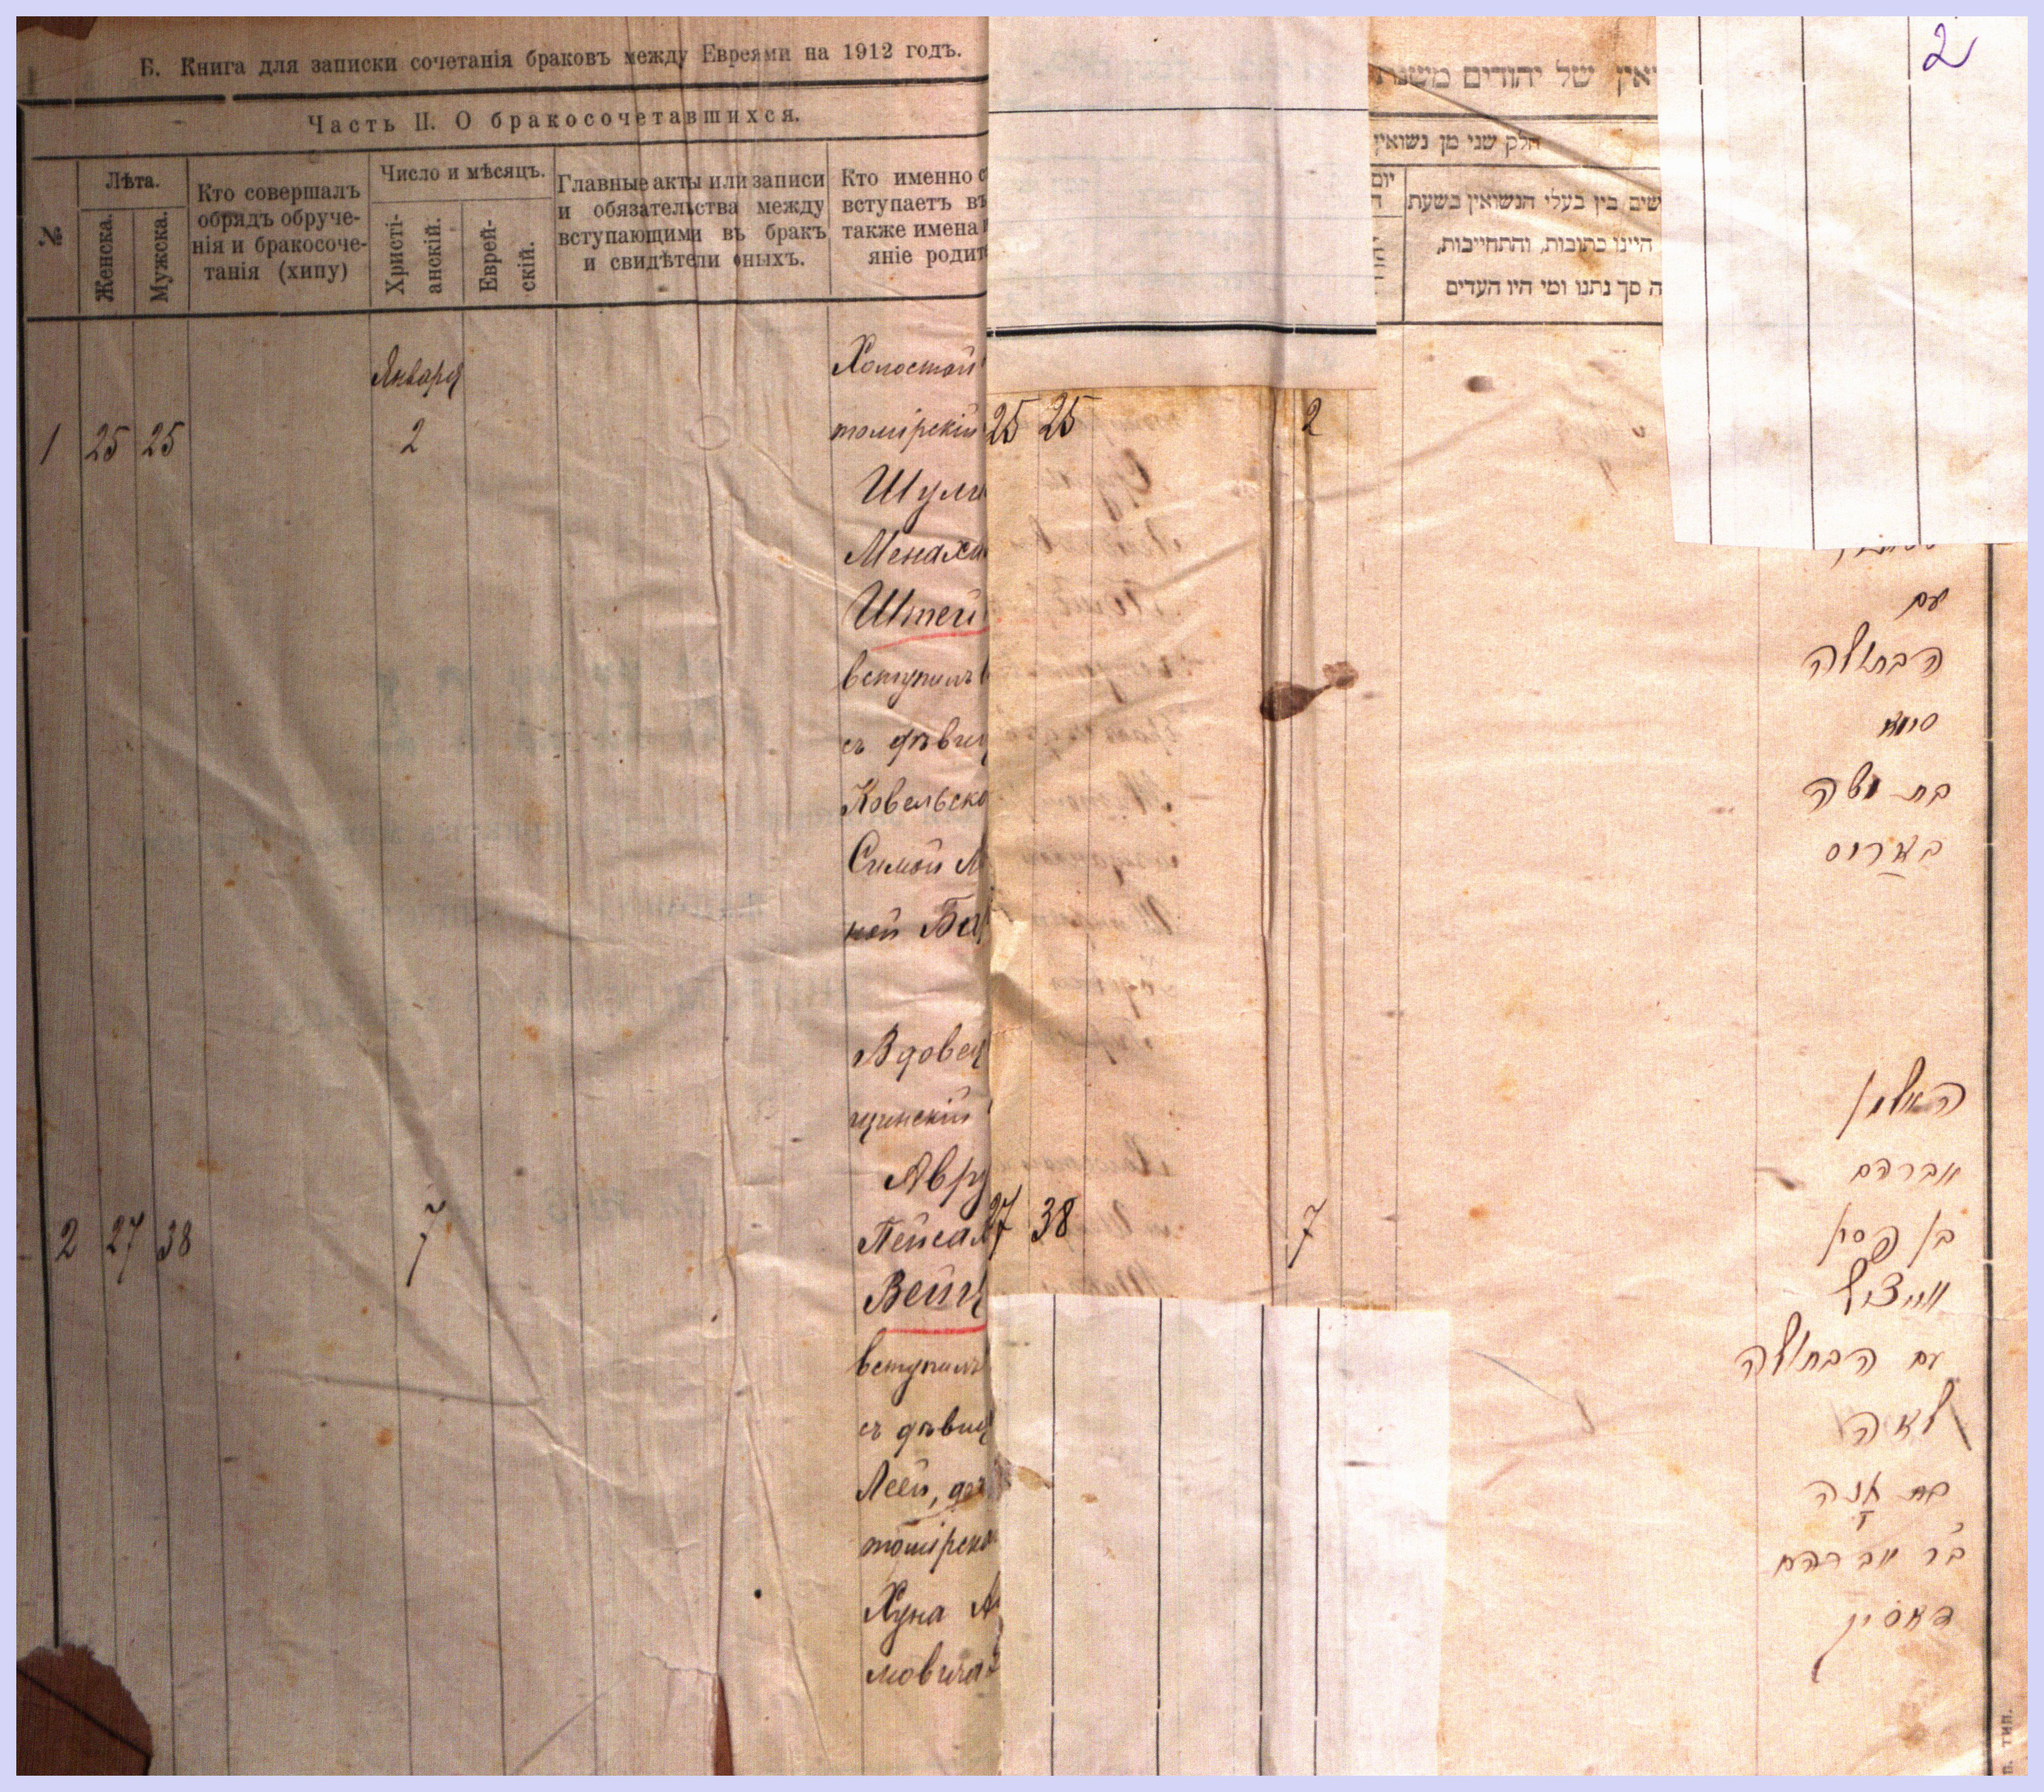 Б. Книга для записки сочетанія браковъ между Евреями на 1912 годъ.
Часть II. О бракосочетавшихся.
№
Лѣта.
Женска.
Мужска.
Кто совершалъ
обрядъ обруче-
нія и бракосоче-
танія (хипу)
Число и мѣсяцъ.
Христі-
анскій.
Еврей-
скій.
Главные акты или записи
и обязательства между
вступающими въ бракъ
и свидѣтели оныхъ.
Кто именно с
вступаетъ въ
также имена и
яніе родит
Января
1 25 25 2
Холостой
томірскій
Шулим
Менахи
Штей
вступилъ в
съ дѣвиц
Ковельско
Симой
кой Ба
2 27 38 7
Вдовец
щинскій
Авру
Пейсах
Вейц
вступилъ
съ дѣвиц
Леей, доч
томірско
Хуна А
мовича
25 25 2
27 38 7
יאין של יהודים משנת
חלק שני מן נשואין
יום
שים בין בעלי הנשואין בשעת
היינו כתובות, והתחייבות,
ה סך נתנו ומי היו העדים
2
עם
הבתולה
סימא
בת
באריס
האלמן
אברהם
בן פסח
ווייצ
עם הבתולה
לאה
בת
בר אברהם
п. тип.